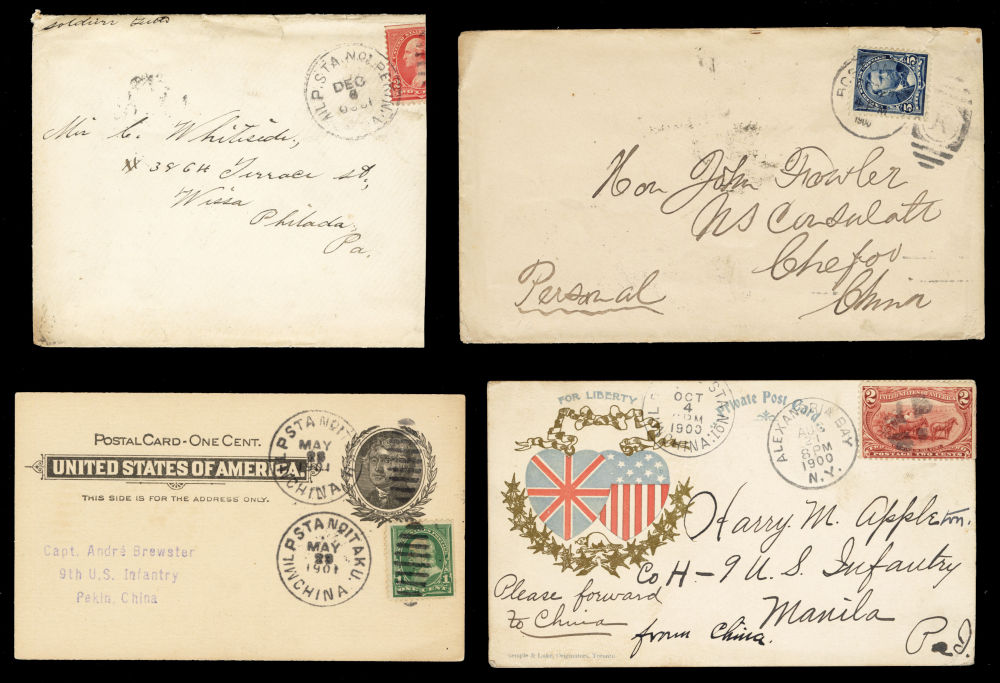 soldiers letter
MIL. P. STA. NO 1. PEKIN.
DEC
8
Mis C. Whiteside,
3864 Terrace st.,
Wissa
Philada,
Pa.
1900
Hon John Fowler
US Consulate
Chefoo
China
Personal
POSTAL CARD · ONE CENT.
UNITED STATES OF AMERICA
THIS SIDE IS FOR THE ADDRESS ONLY.
MIL. P. STA NO 1 TAKU.
MAY
28
1901
CHINA
MIL. P. STA NO 1 TAKU.
MAY
28
1901
CHINA
1
ONE CENT
Capt. André Brewster
9th U.S. Infantry
Pekin, China
FOR LIBERTY
Private Post Card
OCT
4
PM
1900
CHINA
ALEXANDRIA BAY
AUG
21
8 PM
1900
N.Y.
2
UNITED STATES OF AMERICA
2
TWO CENTS
Harry M. Appleton.
Co H-9 U.S. Infantry
Manila
P.I.
Please forward
to China
from China.
Semple & Luke, Originators, Toronto.